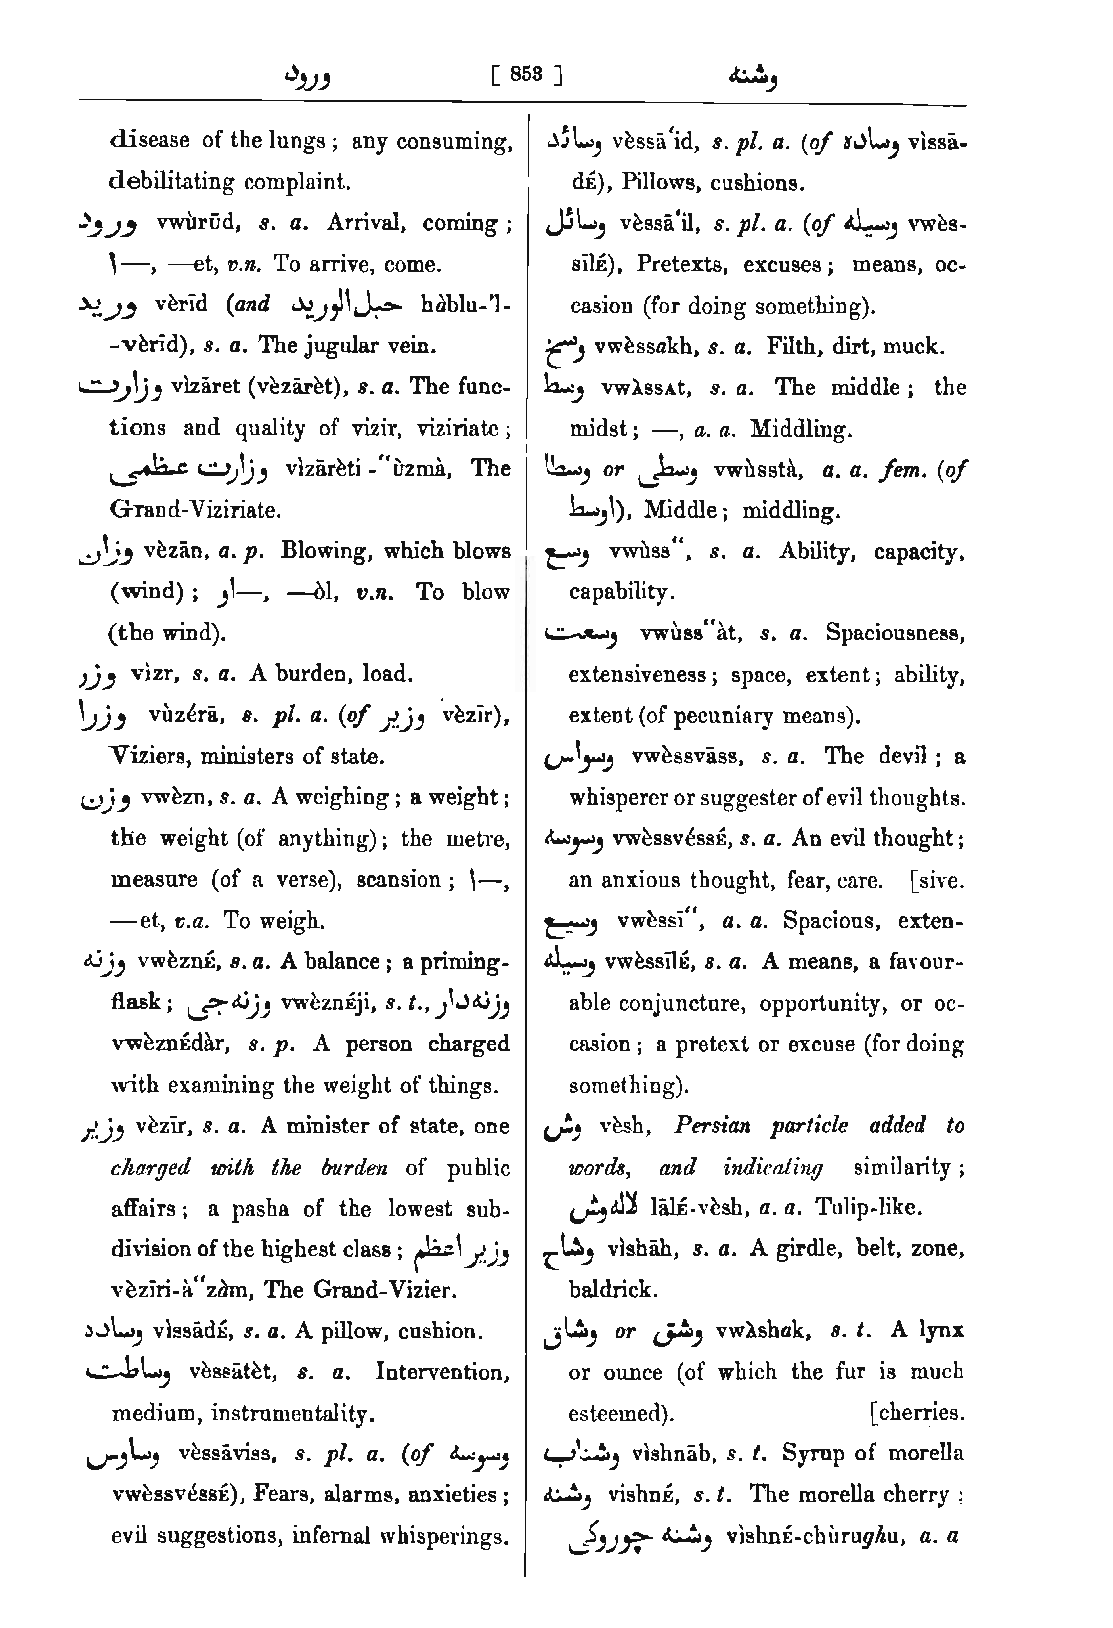 ورود [ 853 ] وشنه
disease of the lungs; any consuming,
debilitating complaint.
ورود vwùrūd, s. a. Arrival, coming;
ا—, —et, v.n. To arrive, come.
وريد vèrīd (and حبل الوريد hàblu-'l-
-vèrīd), s. a. The jugular vein.
وزارت vìzāret (vèzārèt), s. a. The func-
tions and quality of vizir, viziriate;
وزارت عظمى vìzārèti-“ùzmà, The
Grand-Viziriate.
وزان vèzān, a. p. Blowing, which blows
(wind); او—, —òl, v.n. To blow
(the wind).
وزر vìzr, s. a. A burden, load.
وزرا vùzérā, s. pl. a. (of وزير vèzīr),
Viziers, ministers of state.
وزن vwèzn, s. a. A weighing; a weight;
the weight (of anything); the metre,
measure (of a verse), scansion; ا—,
—et, v.a. To weigh.
وزنه vwèznÉ, s. a. A balance; a priming-
flask; وزنه‌جى vwèznÉji, s. t., وزنه‌دار
vwèznÉdàr, s. p. A person charged
with examining the weight of things.
وزير vèzīr, s. a. A minister of state, one
charged with the burden of public
affairs; a pasha of the lowest sub-
division of the highest class; وزير اعظم
vèzīri-à“zàm, The Grand-Vizier.
وساده vìssādÉ, s. a. A pillow, cushion.
وساطت vèssātèt, s. a. Intervention,
medium, instrumentality.
وساوس vèssāviss, s. pl. a. (of وسوسه
vwèssvéssÉ), Fears, alarms, anxieties;
evil suggestions, infernal whisperings.
وسائد vèssā‘id, s. pl. a. (of وساده vìssā-
dÉ), Pillows, cushions.
وسائل vèssā‘il, s. pl. a. (of وسيله vwès-
sīlÉ), Pretexts, excuses; means, oc-
casion (for doing something).
وسخ vwèssakh, s. a. Filth, dirt, muck.
وسط vwÀssAt, s. a. The middle; the
midst; —, a. a. Middling.
وسطا or وسطى vwùsstà, a. a. fem. (of
اوسط), Middle; middling.
وسع vwùss“, s. a. Ability, capacity,
capability.
وسعت vwùss“àt, s. a. Spaciousness,
extensiveness; space, extent; ability,
extent (of pecuniary means).
وسواس vwèssvāss, s. a. The devil; a
whisperer or suggester of evil thoughts.
وسوسه vwèssvéssÉ, s. a. An evil thought;
an anxious thought, fear, care. [sive.
وسيع vwèssī“, a. a. Spacious, exten-
وسيله vwèssīlÉ, s. a. A means, a favour-
able conjuncture, opportunity, or oc-
casion; a pretext or excuse (for doing
something).
وش vèsh, Persian particle added to
words, and indicating similarity;
لاله‌وش lālÉ-vèsh, a. a. Tulip-like.
وشاح vìshāh, s. a. A girdle, belt, zone,
baldrick.
وشاق or وشق vwÀshak, s. t. A lynx
or ounce (of which the fur is much
esteemed). [cherries.
وشناب vìshnāb, s. t. Syrup of morella
وشنه vishnÉ, s. t. The morella cherry;
وشنه چوروكى vìshnÉ-chùrughu, a. a